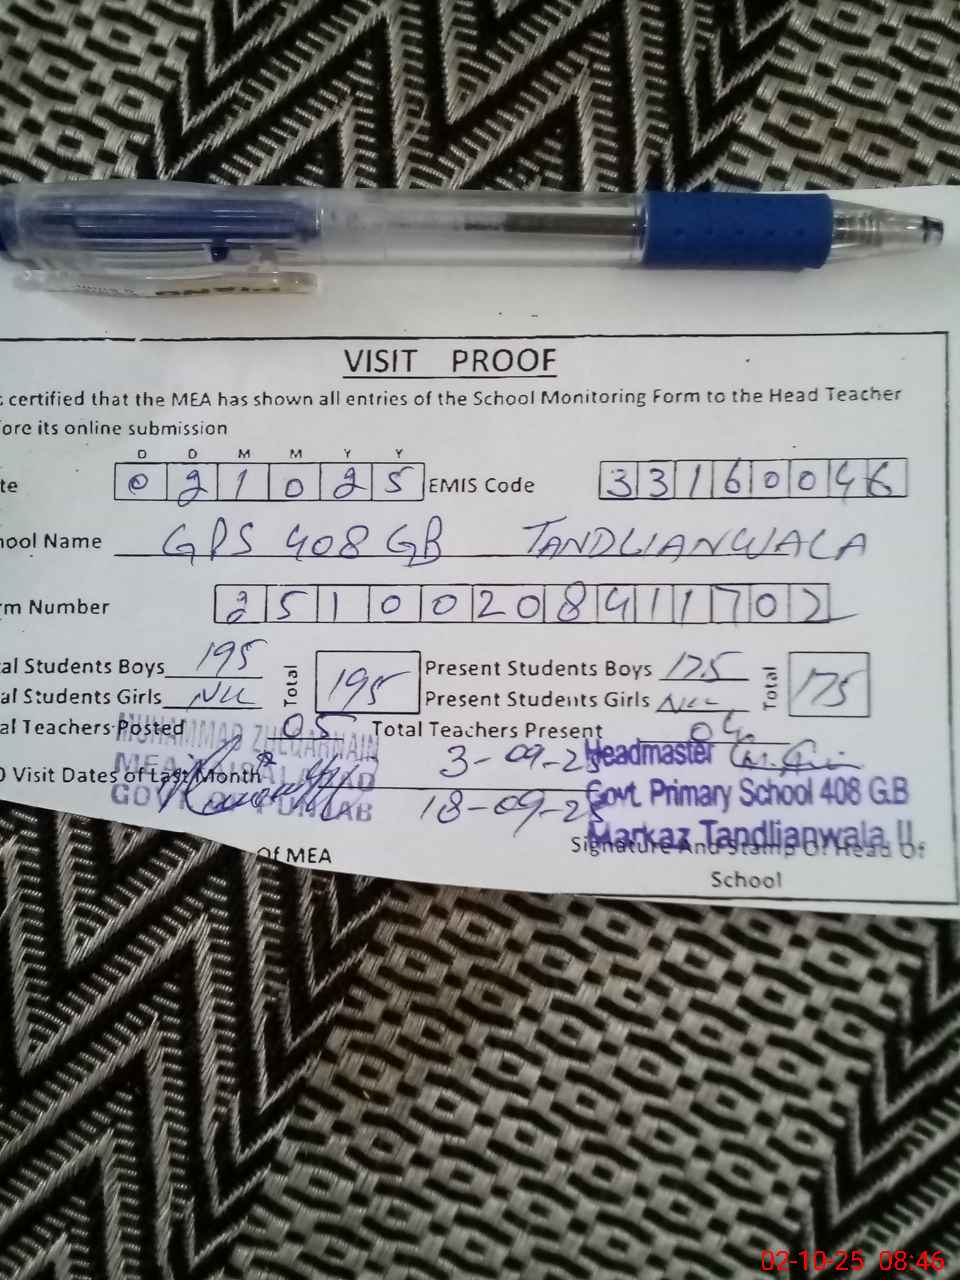 PIANO
VISIT PROOF
certified that the MEA has shown all entries of the School Monitoring Form to the Head Teacher
ore its online submission
D D M M Y Y
te 0 2 1 0 2 5 EMIS Code 3 3 1 6 0 0 4 6
ool Name GPS 408 GB TANDLIANWALA
rm Number 2 5 1 0 0 2 0 8 4 1 1 7 0 2
al Students Boys 195 Total 195 Present Students Boys 175 Total 175
al Students Girls Nil Present Students Girls Nil
al Teachers Posted 05 Total Teachers Present 04
MUHAMMAD ZULQARNAIN
MEA FAISALABAD
GOVT OF PUNJAB
Visit Dates of Last Month 3-09-25
18-09-25
Headmaster
Govt. Primary School 408 G.B
Markaz Tandlianwala II
Of MEA Signature And Stamp Of Head Of
School
02-10-25 08:46